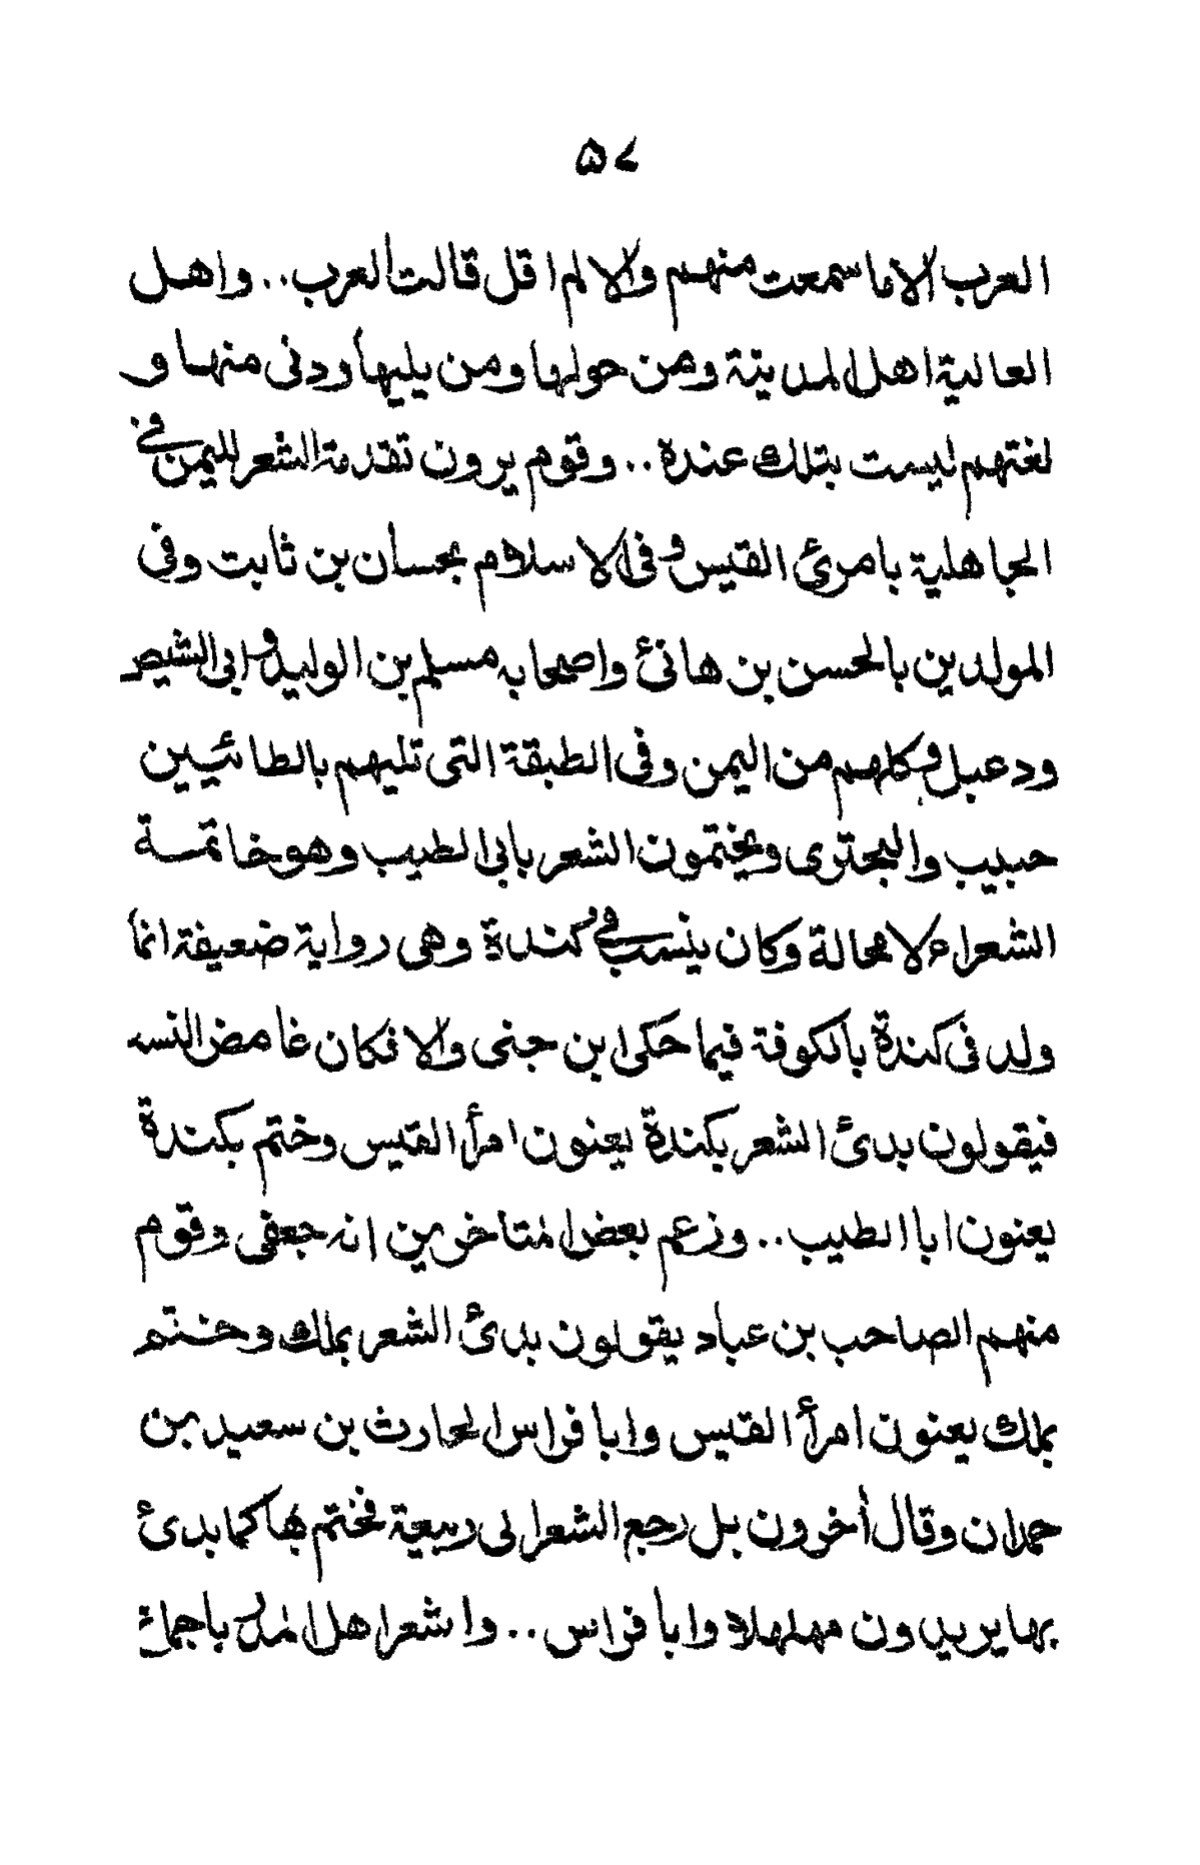 ۵۷
العرب الا ما سمعت منهم والا لم اقل قالت العرب.. واهل
العالية اهل المدينة ومن حولها ومن يليها ودنى منها و
لغتهم ليست بتلك عنده.. وقوم يرون تقدمة الشعر لليمن فى
الجاهلية بامرئ القيس وفى الاسلام بحسان بن ثابت وفى
المولدين بالحسن بن هانئ واصحابه مسلم بن الوليد وابى الشيص
ودعبل وكلهم من اليمن وفى الطبقة التى تليهم بالطائيين
حبيب والبحترى ويختمون الشعر بابى الطيب وهو خاتمة
الشعراء لا محالة وكان ينسب فى كندة وهى رواية ضعيفة انما
ولد فى كندة بالكوفة فيما حكى ابن جنى والا فكان غامض النسب
فيقولون بدئ الشعر بكندة يعنون امرأ القيس وختم بكندة
يعنون ابا الطيب.. وزعم بعض المتاخرين انه جعفى وقوم
منهم الصاحب بن عباد يقولون بدئ الشعر بملك وختم
بملك يعنون امرأ القيس وابا فراس الحارث بن سعيد بن
حمدان وقال أخرون بل رجع الشعر الى ربيعة فختم بها كما بدئ
بها يريدون مهلهلا وابا فراس.. واشعر اهل المدر باجماع